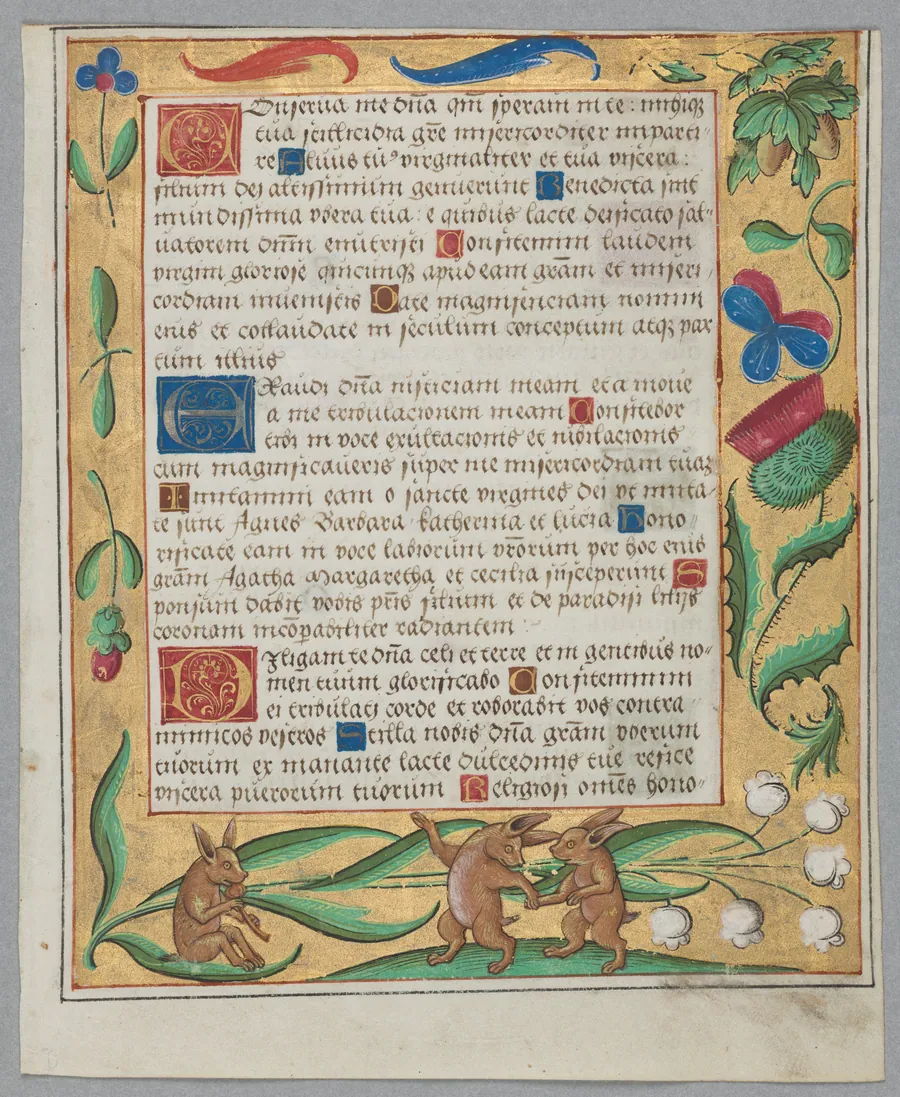 Conserva me dña qm̃ speravi in te : michiq3
tua stillicidia grẽ misericorditer imparti-
re Alvus tuꝰ virginaliter et tua viscera :
filium dei altissimum genuerunt Benedicta sint
mundissima vbera tua : e quibus lacte deificato sal-
vatorem dñm enutristi Confitemini laudem
virgini gloriose quicunq3 apud eam grãm et miseri-
cordiam invenistis Date magnificenciam nomini
eius et collaudate in seculum conceptum atq3 par
tum illius
Exaudi dña iusticiam meam et a move
a me tribulacionem meam Confitebor
tibi in voce exultacionis et iubilacionis
cum magnificaveris super me misericordiam tuã
Imitamini eam o sancte virgines dei vt imita-
te sunt Agnes Barbara katherina et lucia Hono-
rificate eam in voce labiorum vr̃orum per hoc enis
grãm Agatha Margaretha et cecilia susceperunt S
ponsum dabit vobis pr̃is filium et de paradisi lilijs
coronam incõparabiliter radiantem :
Diligam te dña celi et terre et in gentibus no-
men tuum glorificabo Confitemini
ei tribulati corde et roborabit vos contra
inimicos vestros Stilla nobis dña grãm vberum
tuorum ex manante lacte dulcedinis tue refice
viscera puerorum tuorum Religiosi om̃es hono-